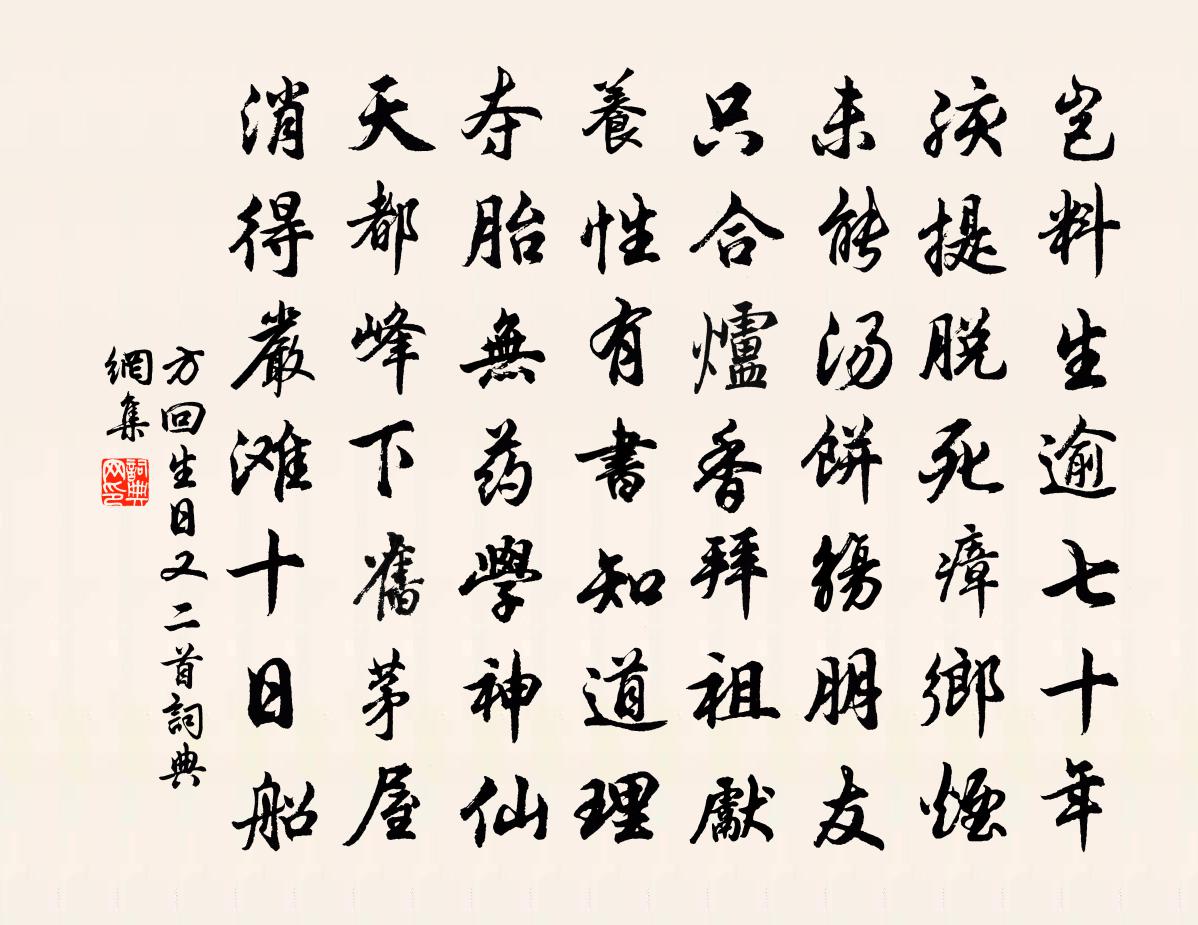 豈料生逾七十年
孩提脱死瘴鄉煙
未能汤餅觴朋友
只合爐香拜祖獻
養性有書知道理
夺胎無药學神仙
天都峰下舊茅屋
消得嚴滩十日船
方回生日又二首詞典
網集
詞典网印